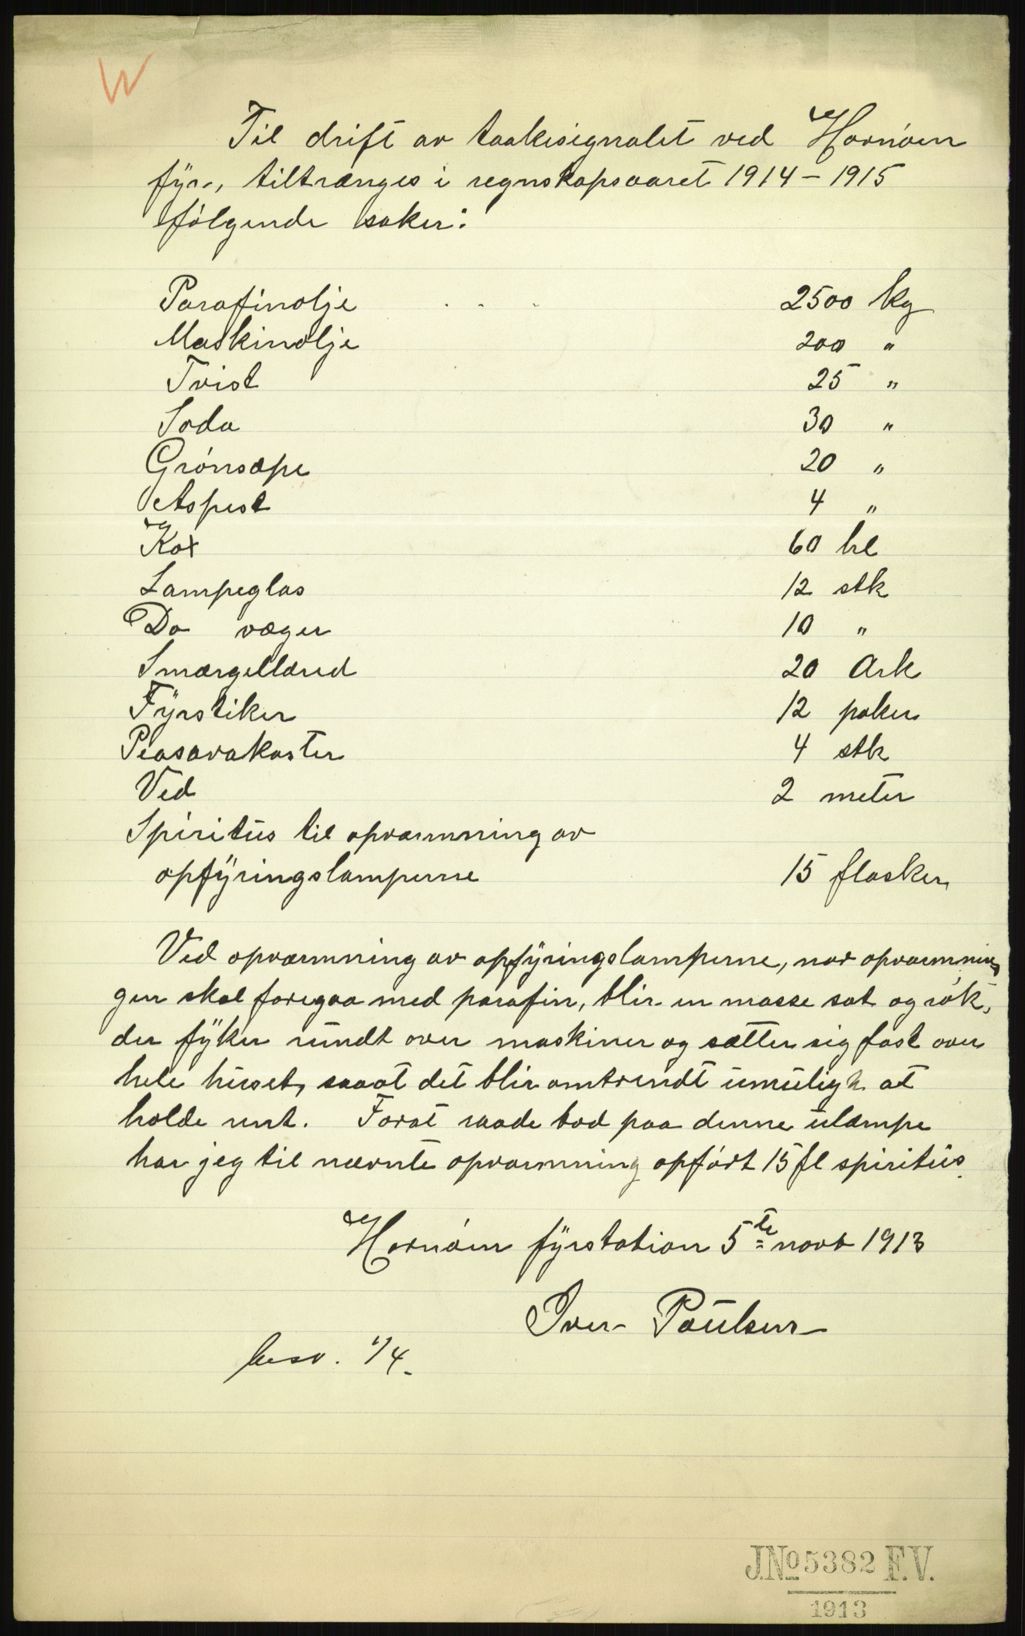 W
Til drift av taakesignalet ved Hornøen
fyr, tiltrænges i regnskapsaaret 1914 – 1915
følgende saker:
Parafinolje . . . 2500 kg
Maskinolje 200 "
Tvist 25 "
Soda 30 "
Grønsæpe 20 "
Aspest 4 "
Kox 60 hl
Lampeglas 12 stk
Do væger 10 "
Smærgellærred 20 Ark
Fyrstiker 12 paker
Peasavakoster 4 stk
Ved 2 meter
Spiritus til opvarmning av
opfyringslamperne 15 flasker
Ved opvarmning av opfyringslamperne, naar opvarmnin
gen skal foregaa med parafin, blir en masse sot og røk,
der fyker rundt over maskiner og sætter sig fast over
hele huset, saaat det blir omtrendt umuligt at
holde rent. Forat raade bod paa denne ulæmpe
har jeg til nævnte opvarmning opført 15 fl spiritus.
Hornøen fyrstation 5te novb 1913
Iver Paulsen
besv. 1/4.
J.No 5382 F.V.
1913